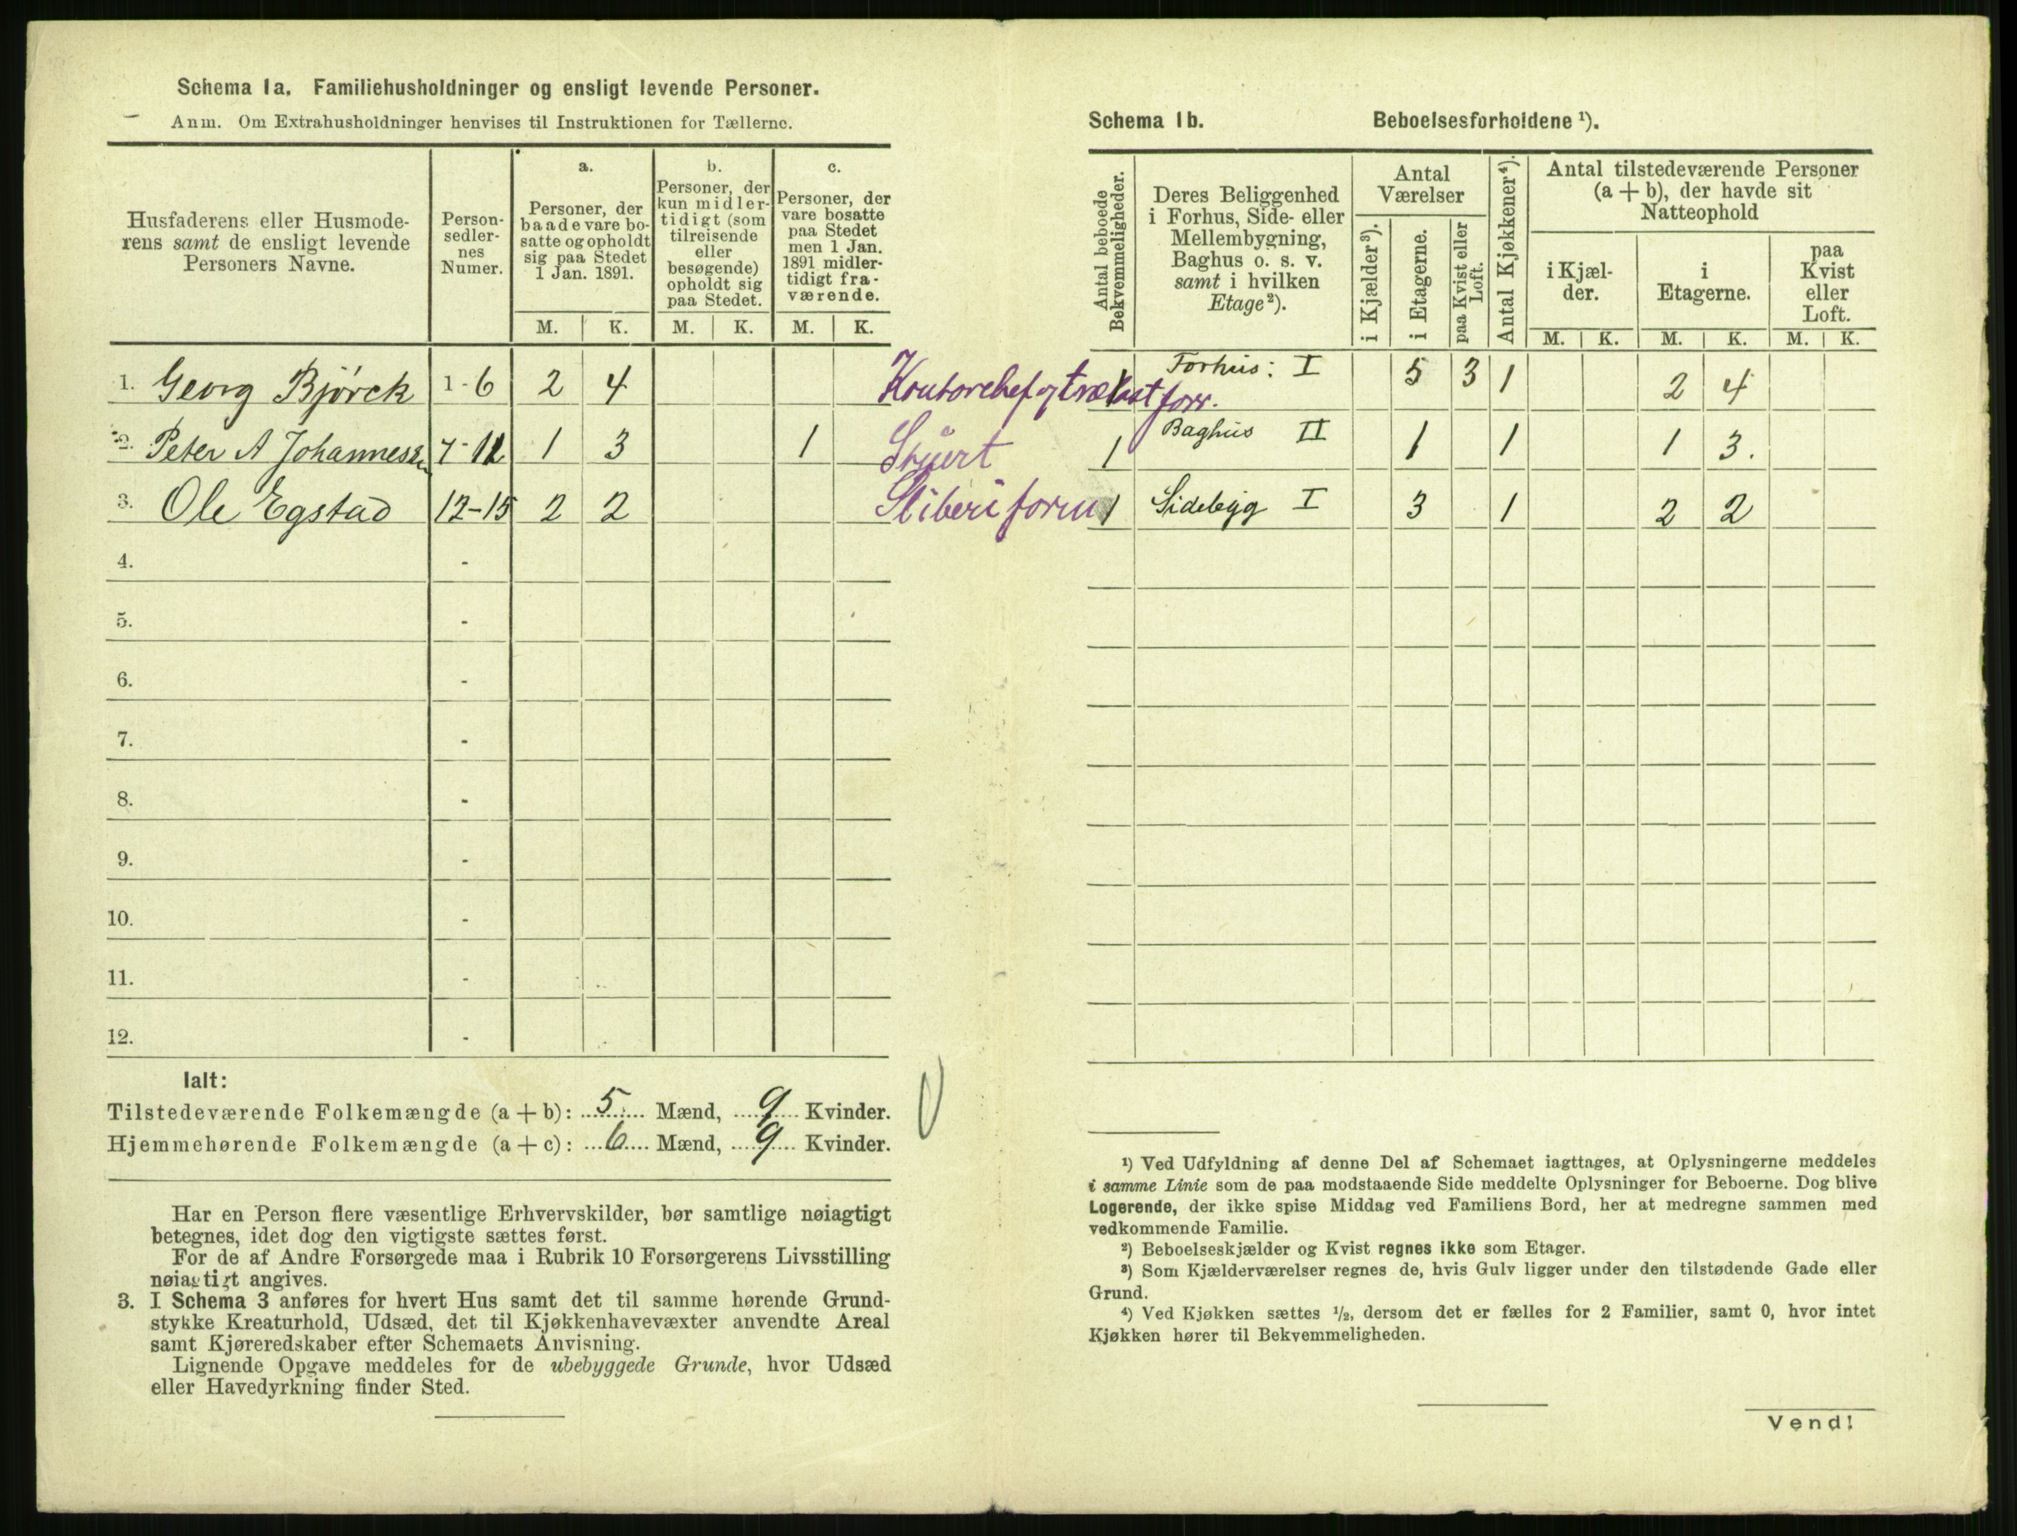 Schema 1a. Familiehusholdninger og ensligt levende Personer.
Anm. Om Extrahusholdninger henvises til Instruktionen for Tællerne.
Husfaderens eller Husmoderens samt de ensligt levende Personers Navne.
Personsedlernes Numer.
a.
Personer, der baade vare bosatte og opholdt sig paa Stedet 1 Jan. 1891.
b.
Personer, der kun midlertidigt (som tilreisende eller besøgende) opholdt sig paa Stedet.
c.
Personer, der vare bosatte paa Stedet men 1 Jan. 1891 midlertidigt fraværende.
M. K. M. K. M. K.
1. Georg Bjørck 1-6 2 4 Kontorchef og trælastforr.
2. Peter A Johannessen 7-11 1 3 1 Styert
3. Ole Egstad 12-15 2 2 Sliberiform
4. -
5. -
6. -
7. -
8. -
9. -
10. -
11. -
12. -
Ialt:
Tilstedeværende Folkemængde (a + b): 5 Mænd, 9 Kvinder.
Hjemmehørende Folkemængde (a + c): 6 Mænd, 9 Kvinder.
Har en Person flere væsentlige Erhvervskilder, bør samtlige nøiagtigt
betegnes, idet dog den vigtigste sættes først.
For de af Andre Forsørgede maa i Rubrik 10 Forsørgerens Livsstilling
nøiagtigt angives.
3. I Schema 3 anføres for hvert Hus samt det til samme hørende Grund-
stykke Kreaturhold, Udsæd, det til Kjøkkenhavevæxter anvendte Areal
samt Kjøreredskaber efter Schemaets Anvisning.
Lignende Opgave meddeles for de ubebyggede Grunde, hvor Udsæd
eller Havedyrkning finder Sted.
Schema 1b. Beboelsesforholdene ¹).
Antal beboede Bekvemmeligheder.
Deres Beliggenhed i Forhus, Side- eller Mellembygning, Baghus o. s. v. samt i hvilken Etage ²).
Antal Værelser
i Kjælder ³).
i Etagerne.
paa Kvist eller Loft.
Antal Kjøkkener ⁴).
Antal tilstedeværende Personer (a + b), der havde sit Natteophold
i Kjælder.
i Etagerne.
paa Kvist eller Loft.
M. K. M. K. M. K.
1 Forhus: I 5 3 1 2 4
1 Baghus II 1 1 1 3.
1 Sidebyg I 3 1 2 2
¹) Ved Udfyldning af denne Del af Schemaet iagttages, at Oplysningerne meddeles
i samme Linie som de paa modstaaende Side meddelte Oplysninger for Beboerne. Dog blive
Logerende, der ikke spise Middag ved Familiens Bord, her at medregne sammen med
vedkommende Familie.
²) Beboelseskjælder og Kvist regnes ikke som Etager.
³) Som Kjælderværelser regnes de, hvis Gulv ligger under den tilstødende Gade eller
Grund.
⁴) Ved Kjøkken sættes ¹/₂, dersom det er fælles for 2 Familier, samt 0, hvor intet
Kjøkken hører til Bekvemmeligheden.
Vend!